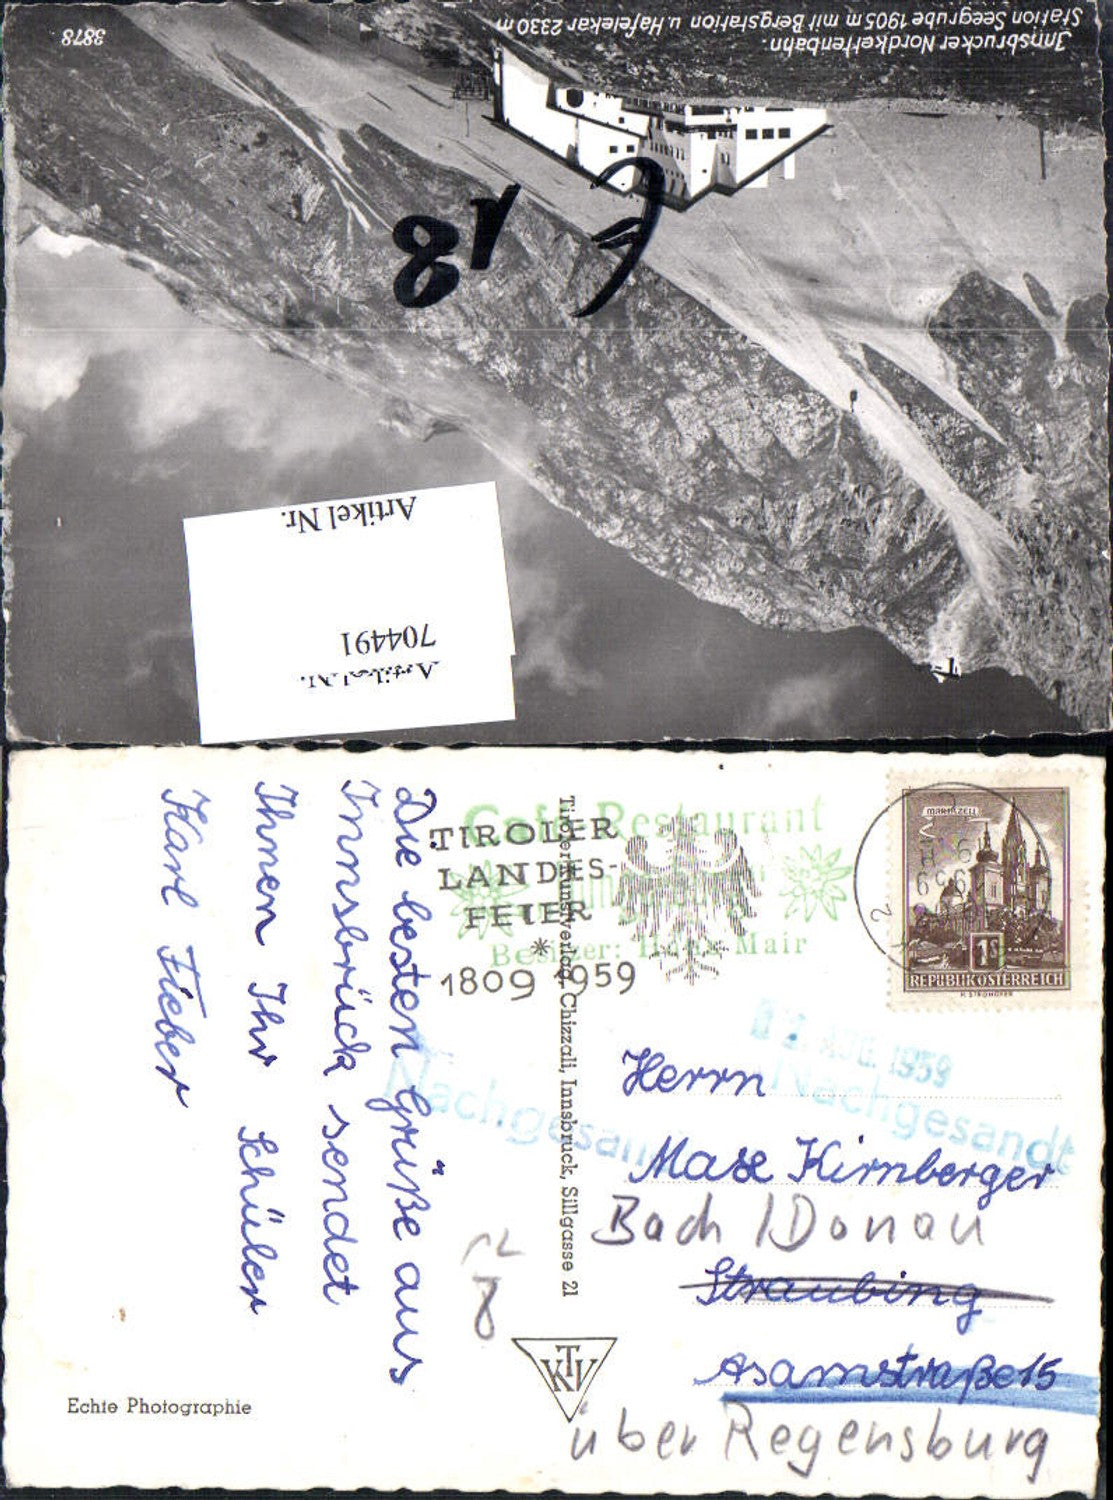 Innsbrucker Nordkettenbahn.
Station Seegrube 1905 m mit Bergstation u. Hafelekar 2330 m
3878
18
Artikel Nr.
704491
Artikel Nr.
Die besten Grüße aus
Innsbrück sendet
Ihnen Ihr Schüler
Karl Fieber
Echte Photographie
Café Restaurant
Besitzer: Mair
TIROLER
LANDES-
FEIER
*
1809 1959
Tiroler Kunstverlag Chizzali, Innsbruck, Sillgasse 21
KTV
MARIAZELL
1S
REPUBLIK ÖSTERREICH
2. AUG. 1959
Nachgesandt
Nachgesandt
Herrn
Maxe Kirnberger
Bach / Donau
Straubing
Asamstraße 15
über Regensburg
8